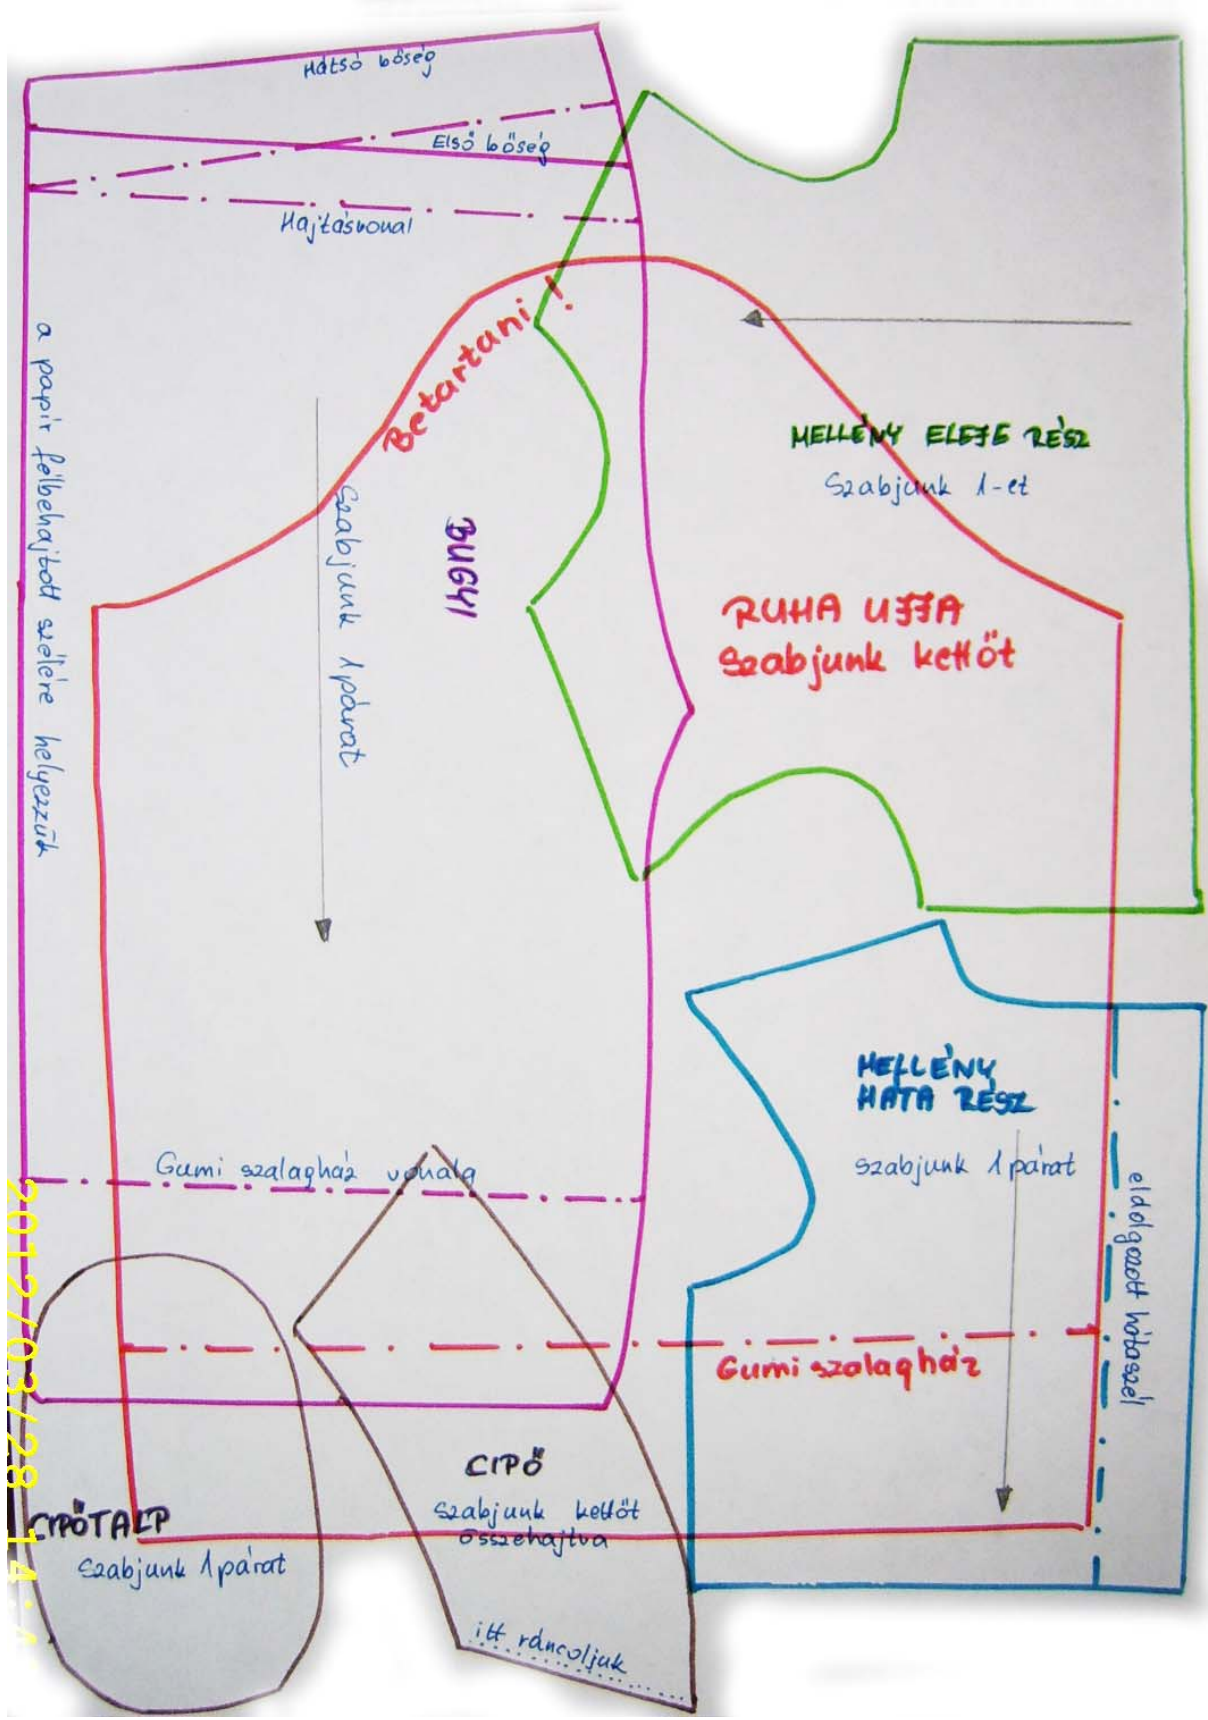 Hátsó bőség
Első bőség
Hajtásvonal
Betartani!
a papír félbehajtott szélére helyezzük
Szabjunk 1 párat
BUGYI
MELLÉNY ELEJE RÉSZ
Szabjunk 1-et
RUHA UJJA
Szabjunk kettőt
MELLÉNY
HÁTA RÉSZ
szabjunk 1 párat
eldolgozott hátaszél
Gumi szalagház vonala
Gumi szalagház
CIPŐ
Szabjunk kettőt
összehajtva
itt ráncoljuk
CIPŐTALP
Szabjunk 1 párat
2012/03/28 14: